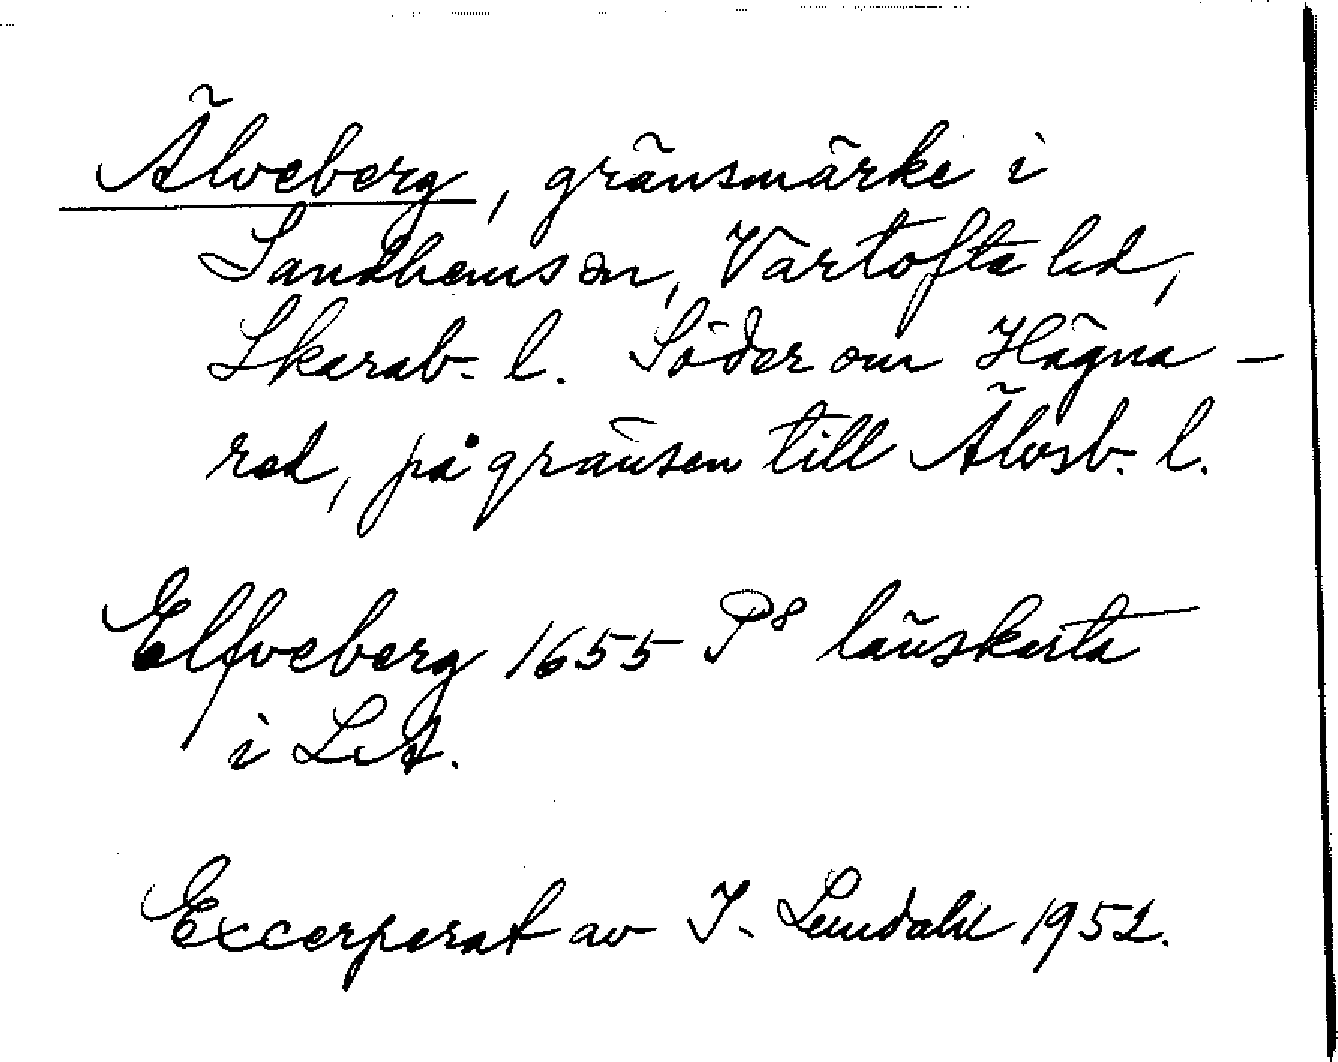 Älveberg, gränsmärke i
Sandhems sn, Vartofta hd,
Skarab. l. Söder om Hägna-
red, på gränsen till Älvsb. l.
Elfveberg 1655 P8 länskarta
i LA.
Excerperat av I. Lundahl 1952.